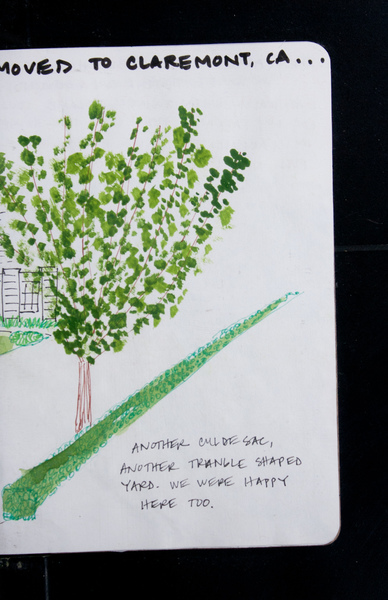 MOVED TO CLAREMONT, CA...
ANOTHER CULDESAC,
ANOTHER TRIANGLE SHAPED
YARD. WE WERE HAPPY
HERE TOO.